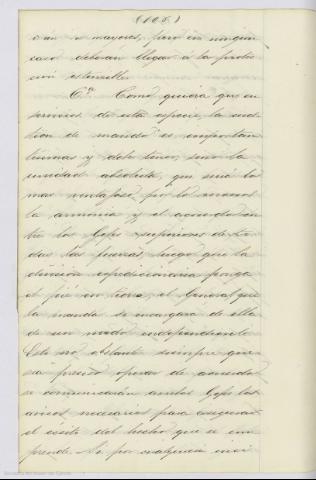 (108)
mayores, pero en ningun
caso deberán llegar á la protec
cion ostensible.
6.ª Como quiera que en
servicios de esta especie, la cues
tion de mando es importan
tisima y debe tener, sino la
unidad absoluta, que seria lo
mas ventajoso, por lo menos
la armonia y el acuerdo en
tre los Gefes superiores de to
das las fuerzas, luego que la
division expedicionaria ponga
el pié en tierra, el General que
la manda se encargará de ella
de un modo independiente
Esto no obstante siempre que
sea preciso operar de acuerdo
se comunicarán ambos Gefes los
avisos necesarios para asegurar
el éxito del hecho que se em
prenda. Si por cualquiera